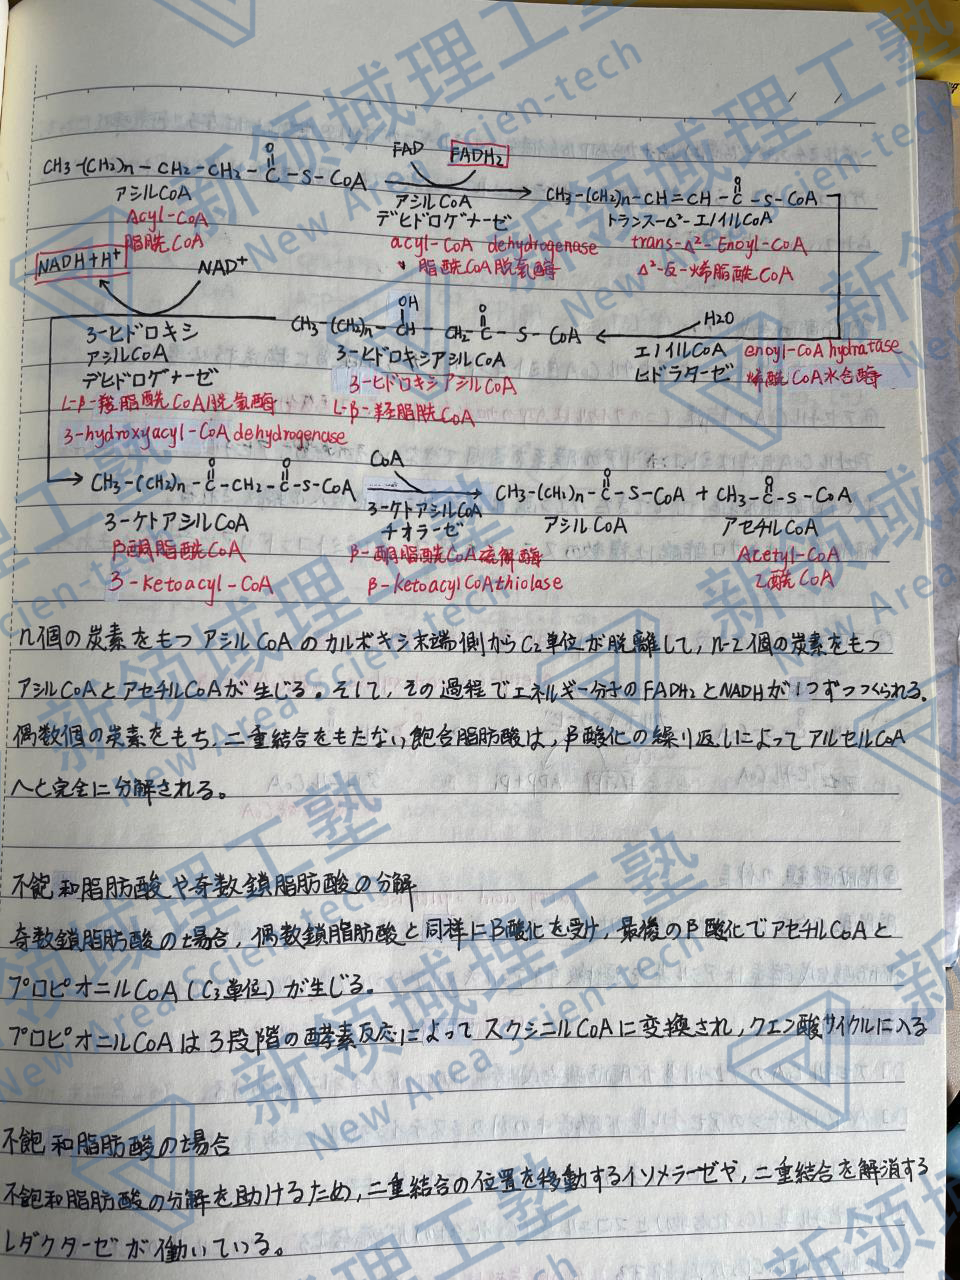 CH3-(CH2)n-CH2-CH2-C-S-CoA
O
FAD
FADH2
CH3-(CH2)n-CH=CH-C-S-CoA
O
アシルCoA
Acyl-CoA
脂酰CoA
アシルCoA
デヒドロゲナーゼ
acyl-CoA dehydrogenase
脂酰CoA脱氢酶
トランス-Δ²-エノイルCoA
trans-Δ²-Enoyl-CoA
Δ²-反-烯脂酰CoA
NADH+H⁺
NAD⁺
3-ヒドロキシ
アシルCoA
デヒドロゲナーゼ
L-β-羟脂酰CoA脱氢酶
3-hydroxyacyl-CoA dehydrogenase
OH
O
CH3-(CH2)n-CH-CH2-C-S-CoA
3-ヒドロキシアシルCoA
3-ヒドロキシアシルCoA
L-β-羟脂酰CoA
H2O
エノイルCoA
ヒドラターゼ
enoyl-CoA hydratase
烯酰CoA水合酶
O
O
CH3-(CH2)n-C-CH2-C-S-CoA
3-ケトアシルCoA
β酮脂酰CoA
3-Ketoacyl-CoA
CoA
3-ケトアシルCoA
チオラーゼ
β-酮脂酰CoA硫解酶
β-ketoacyl CoA thiolase
O
O
CH3-(CH2)n-C-S-CoA + CH3-C-S-CoA
アシルCoA
アセチルCoA
Acetyl-CoA
乙酰CoA
n個の炭素をもつアシルCoAのカルボキシ末端側からC2単位が脱離して,n-2個の炭素をもつ
アシルCoAとアセチルCoAが生じる。そして,その過程でエネルギー分子のFADH2とNADHが1つずつつくられる.
偶数個の炭素をもち,二重結合をもたない飽合脂肪酸は,β酸化の繰り返しによってアルセルCoA
へと完全に分解される。
不飽和脂肪酸や奇数鎖脂肪酸の分解
奇数鎖脂肪酸の場合,偶数鎖脂肪酸と同様にβ酸化を受け,最後のβ酸化でアセチルCoAと
プロピオニルCoA(C3単位)が生じる。
プロピオニルCoAは3段階の酵素反応によってスクシニルCoAに変換され,クエン酸サイクルに入る
不飽和脂肪酸の場合
不飽和脂肪酸の分解を助けるため,二重結合の位置を移動するイソメラーゼや,二重結合を解消する
レダクターゼが働いている。
新领域理工塾
New Area Scien-tech